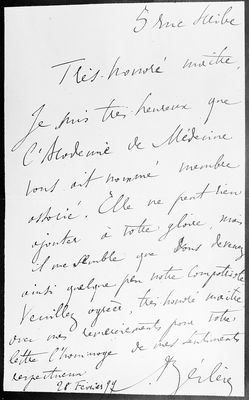 5 rue Scribe
Très honoré maître,
Je suis très heureux que
l'Académie de Médecine
vous ait nommé membre
associé. Elle ne peut rien
ajouter à votre gloire, mais
il me semble que vous devenez
ainsi quelque peu notre compatriote
Veuillez agréer, très honoré maître
avec mes remerciements pour votre
lettre l'hommage de mes sentiments
respectueux
20 Février 97